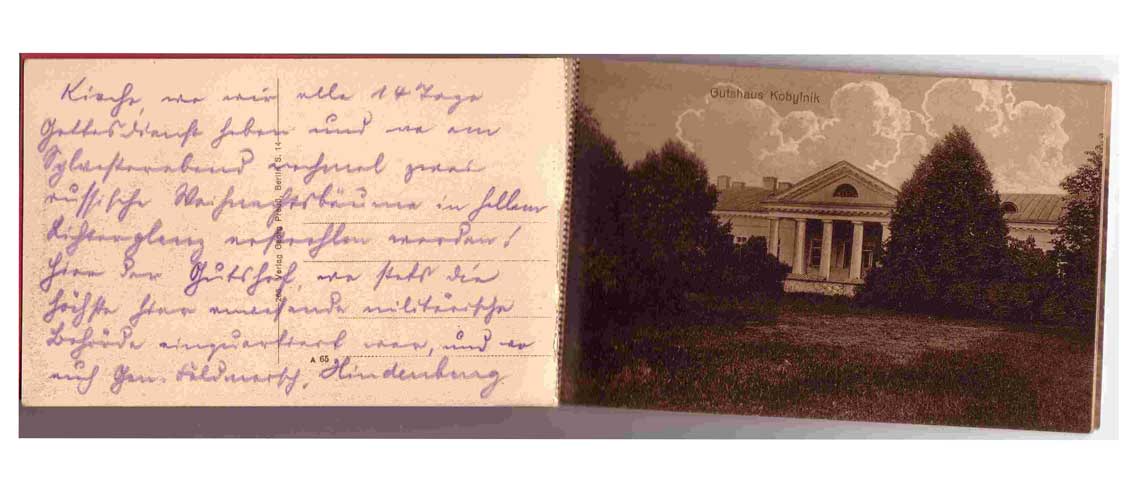 Kirche, wo wir alle 14 Tage
Gottesdienst haben und wo am
Sylvesterabend nochmal zwei
russische Weihnachtsbäume in hellem
Lichterglanz erstrahlen werden!
Hier der Gutshof, wo stets die
höchste hier anwesende militärische
Behörde einquartiert war, und wo
auch Gen. Feldmarsch. Hindenburg
Verlag Georg Berlin S. 14
A 65
Gutshaus Kobylnik